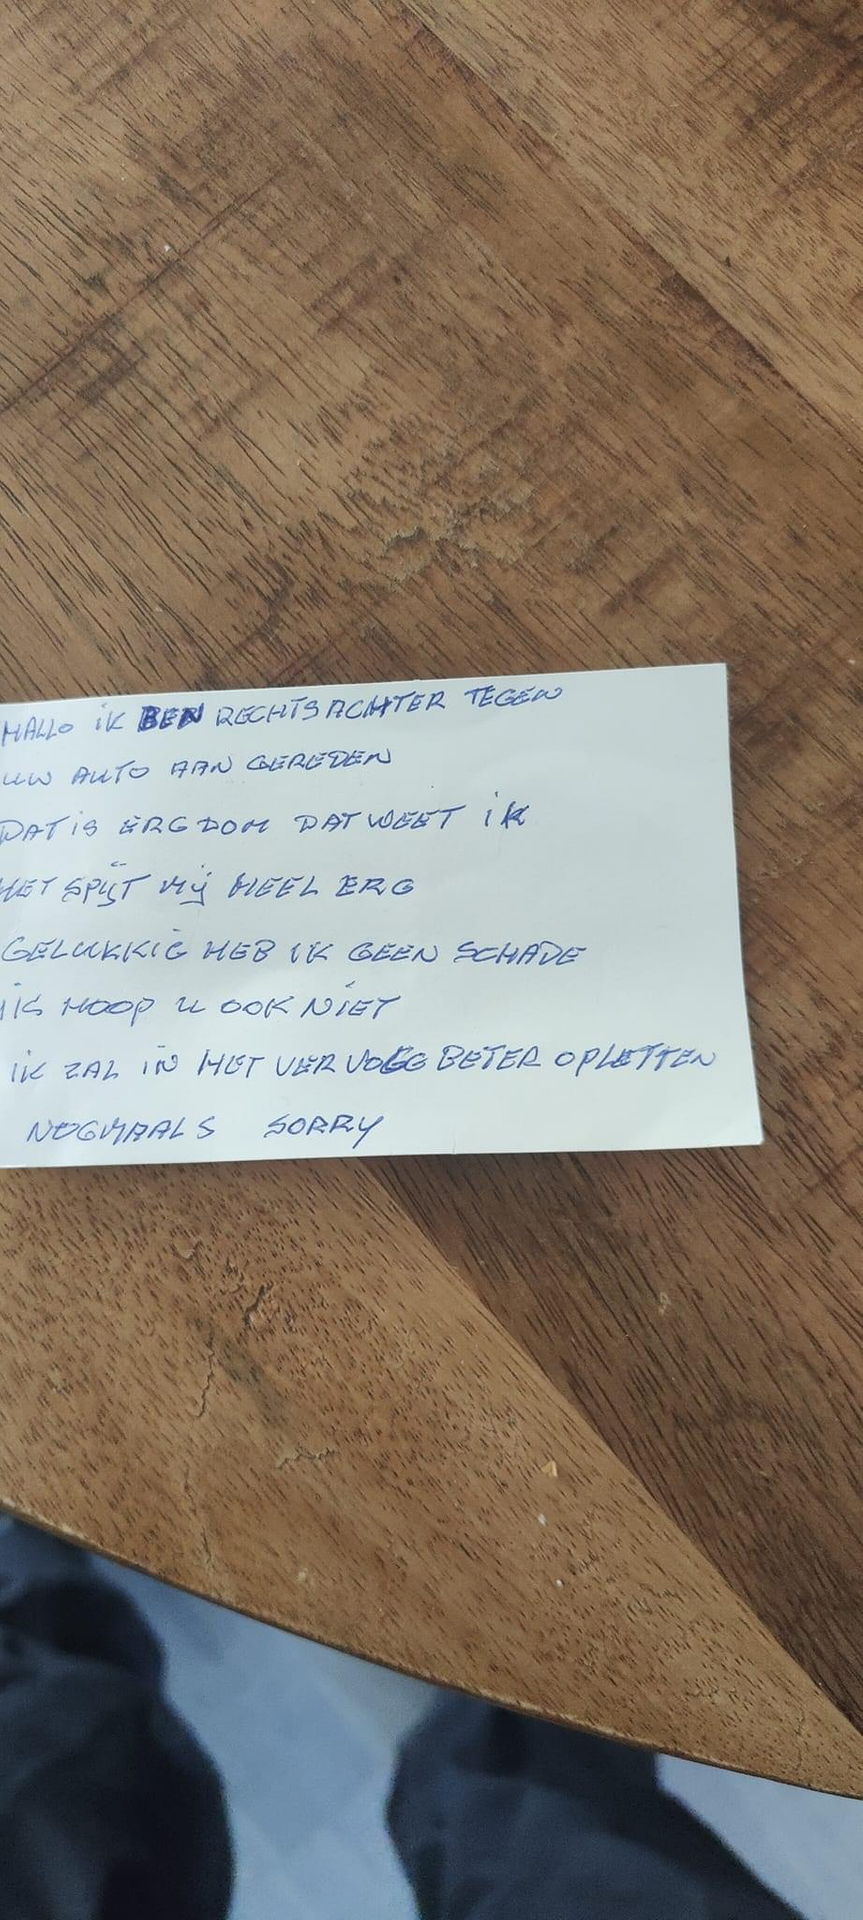 HALLO iK BEN RECHTSACHTER TEGEN
UW AUTO AAN GEREDEN
DAT iS ERG DOM DAT WEET iK
HET SPIJT MIJ HEEL ERG
GELUKKIG HEB IK GEEN SCHADE
IK HOOP U OOK NIET
IK ZAL IN HET VERVOLG BETER OPLETTEN
NOGMAALS SORRY